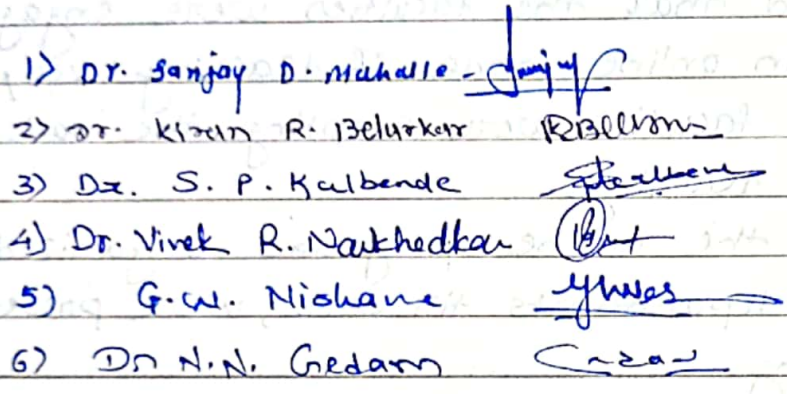 1) Dr. Sanjay D. Mahalle -
2) Dr. Kiran R. Belurkar
3) Dr. S. P. Kalbende
4) Dr. Vivek R. Narkhedkar
5) G.W. Nishane
6) Dr N.N. Gedam